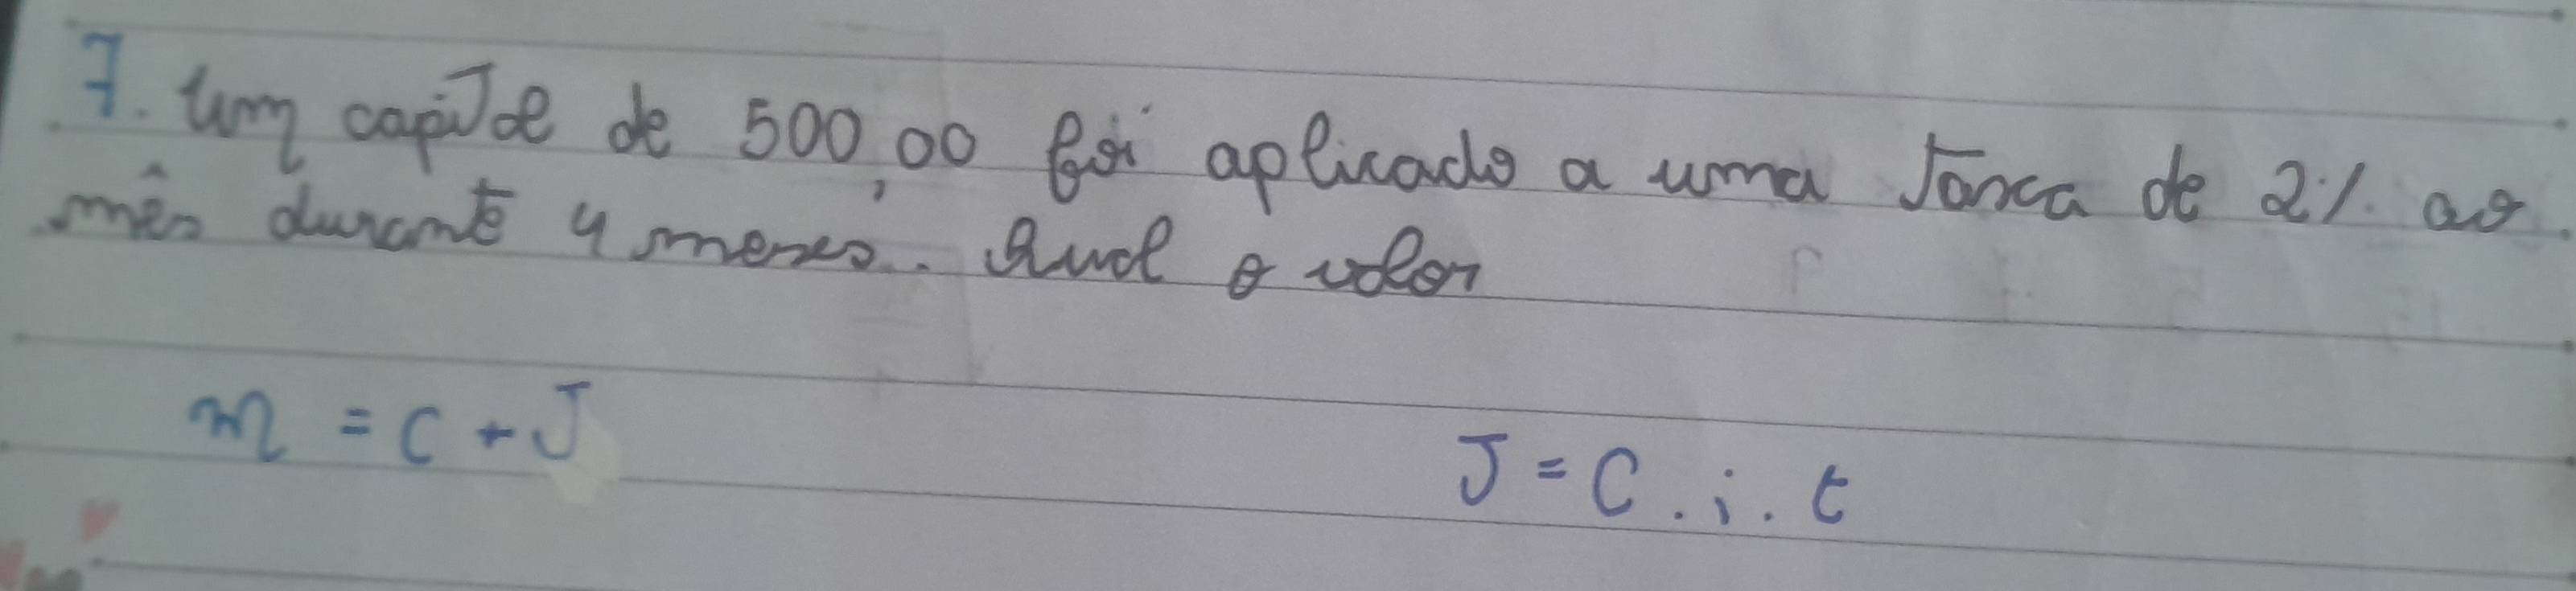 7. Um capital de 500,00 foi aplicado a uma taxa de 2% ao
mês durante 4 meses. Qual o valor
m = C + J
J = C . i . t